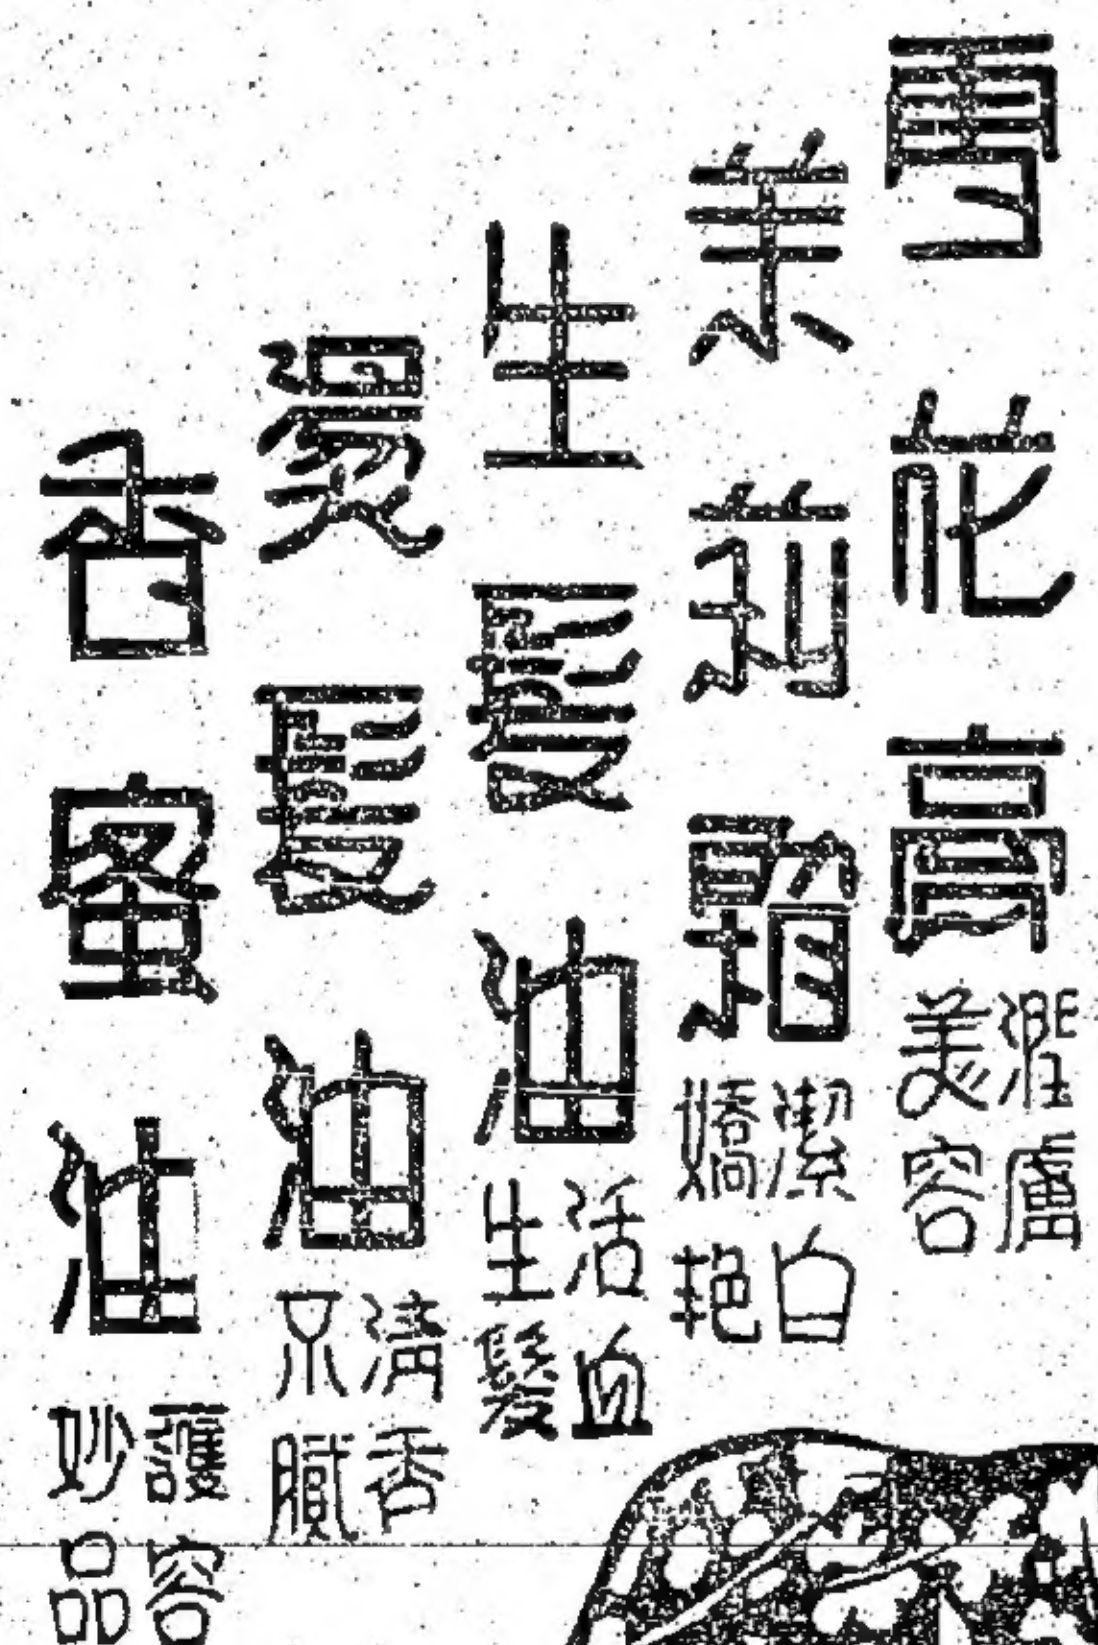 雪花膏
潤膚
美容
茉莉霜
潔白
嬌艳
生髮油
活血
生髮
燙髮油
清香
不膩
香蜜油
護容
妙品